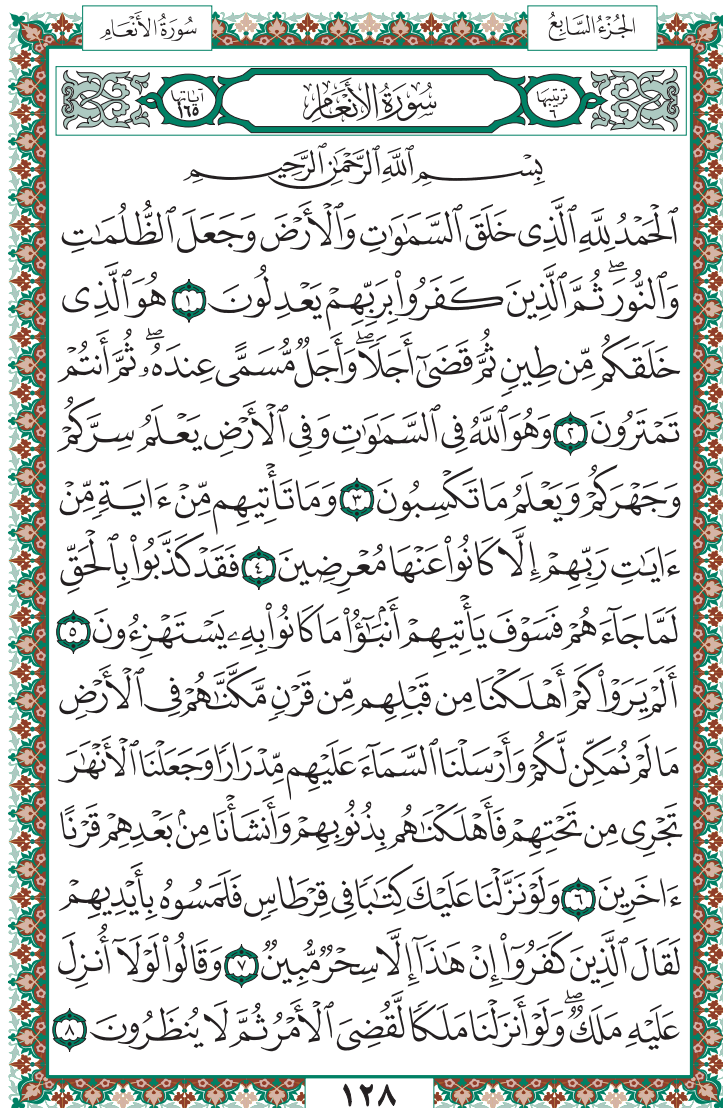 سُورَةُ الأَنْعَامِ
الجُزْءُ السَّابِعُ
ترتيبها ٦
سُورَةُ الأَنْعَامِ
آياتها ١٦٥
بِسْمِ ٱللَّهِ ٱلرَّحْمَٰنِ ٱلرَّحِيمِ
ٱلْحَمْدُ لِلَّهِ ٱلَّذِى خَلَقَ ٱلسَّمَٰوَٰتِ وَٱلْأَرْضَ وَجَعَلَ ٱلظُّلُمَٰتِ
وَٱلنُّورَۖ ثُمَّ ٱلَّذِينَ كَفَرُوا۟ بِرَبِّهِمْ يَعْدِلُونَ ١ هُوَ ٱلَّذِى
خَلَقَكُم مِّن طِينٍ ثُمَّ قَضَىٰٓ أَجَلًاۖ وَأَجَلٌ مُّسَمًّى عِندَهُۥۖ ثُمَّ أَنتُمْ
تَمْتَرُونَ ٢ وَهُوَ ٱللَّهُ فِى ٱلسَّمَٰوَٰتِ وَفِى ٱلْأَرْضِ يَعْلَمُ سِرَّكُمْ
وَجَهْرَكُمْ وَيَعْلَمُ مَا تَكْسِبُونَ ٣ وَمَا تَأْتِيهِم مِّنْ ءَايَةٍ مِّنْ
ءَايَٰتِ رَبِّهِمْ إِلَّا كَانُوا۟ عَنْهَا مُعْرِضِينَ ٤ فَقَدْ كَذَّبُوا۟ بِٱلْحَقِّ
لَمَّا جَآءَهُمْ فَسَوْفَ يَأْتِيهِمْ أَنۢبَٰٓؤُا۟ مَا كَانُوا۟ بِهِۦ يَسْتَهْزِءُونَ ٥
أَلَمْ يَرَوْا۟ كَمْ أَهْلَكْنَا مِن قَبْلِهِم مِّن قَرْنٍ مَّكَّنَّٰهُمْ فِى ٱلْأَرْضِ
مَا لَمْ نُمَكِّن لَّكُمْ وَأَرْسَلْنَا ٱلسَّمَآءَ عَلَيْهِم مِّدْرَارًا وَجَعَلْنَا ٱلْأَنْهَٰرَ
تَجْرِى مِن تَحْتِهِمْ فَأَهْلَكْنَٰهُم بِذُنُوبِهِمْ وَأَنشَأْنَا مِنۢ بَعْدِهِمْ قَرْنًا
ءَاخَرِينَ ٦ وَلَوْ نَزَّلْنَا عَلَيْكَ كِتَٰبًا فِى قِرْطَاسٍ فَلَمَسُوهُ بِأَيْدِيهِمْ
لَقَالَ ٱلَّذِينَ كَفَرُوٓا۟ إِنْ هَٰذَآ إِلَّا سِحْرٌ مُّبِينٌ ٧ وَقَالُوا۟ لَوْلَآ أُنزِلَ
عَلَيْهِ مَلَكٌۖ وَلَوْ أَنزَلْنَا مَلَكًا لَّقُضِىَ ٱلْأَمْرُ ثُمَّ لَا يُنظَرُونَ ٨
١٢٨